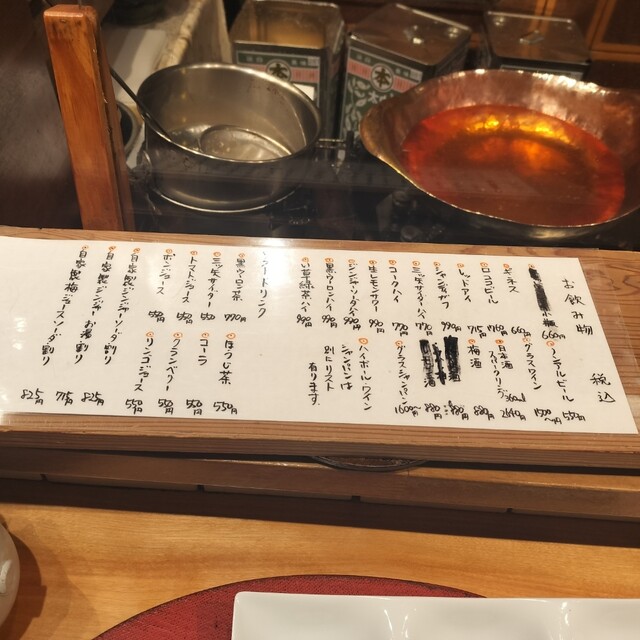 お飲み物 税込
小瓶 660円
ノンアルビール 550円
ギネス
グラスワイン 1500円〜
ロングビール 715円
日本酒 スパークリング 360ml 2640円
レッドアイ 990円
梅酒 880円
シャンディガフ
酒 880円
ミツ矢サイダーハイ 770円
酒 880円
コークハイ 770円
グラスシャンパン 1600円〜
生レモンサワー 990円
ハイボール・ワイン
シャンパンは
別にリスト
有ります。
ジンジャーハイ
黒ウーロンハイ
い草緑茶ハイ
ソフトドリンク
黒ウーロン茶 770円
ほうじ茶 550円
三ツ矢サイダー 550円
コーラ 550円
トマトジュース 550円
クランベリー 550円
リンゴジュース 550円
自家製ジンジャーソーダ割り 825円
自家製ジンジャーお湯割り 715円
自家製梅ジュースソーダ割り 825円
本